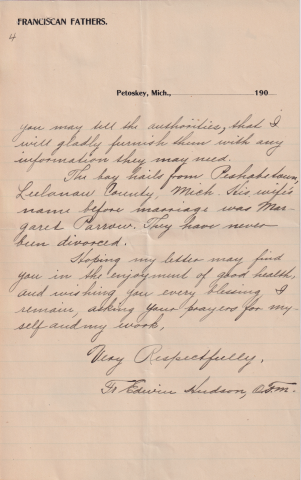 FRANCISCAN FATHERS.
4
Petoskey, Mich., 190
you may tell the authorities, that I
will gladly furnish them with any
information they may need.
The boy hails from Peshabetown,
Leelanau County, Mich. His wife's
name before marriage was Mar-
garet Parrow. They have never
been divorced.
Hoping my letter may find
you in the enjoyment of good health,
and wishing you every blessing I
remain, asking your prayers for my-
self and my work,
Very Respectfully,
Fr Edwin Hudson, O.F.M.